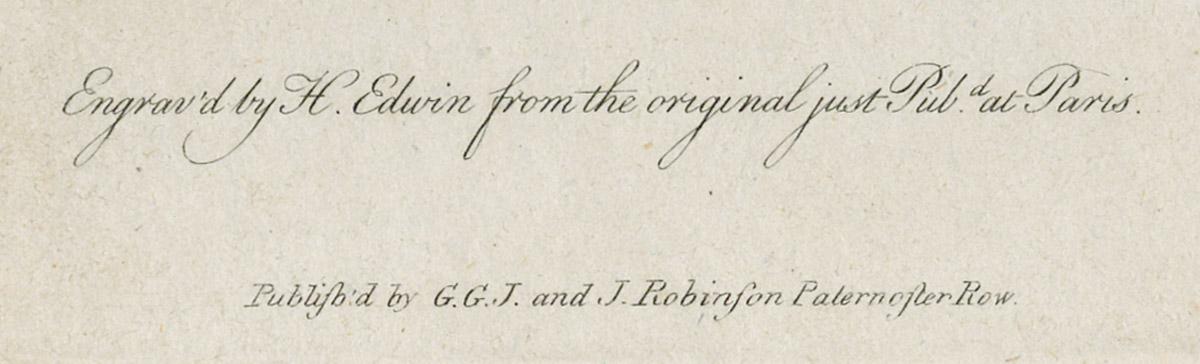 Engrav'd by H. Edwin from the original just Pub.d at Paris.
Publiſh'd by G.G.J. and J. Robinſon Paternoſter Row.